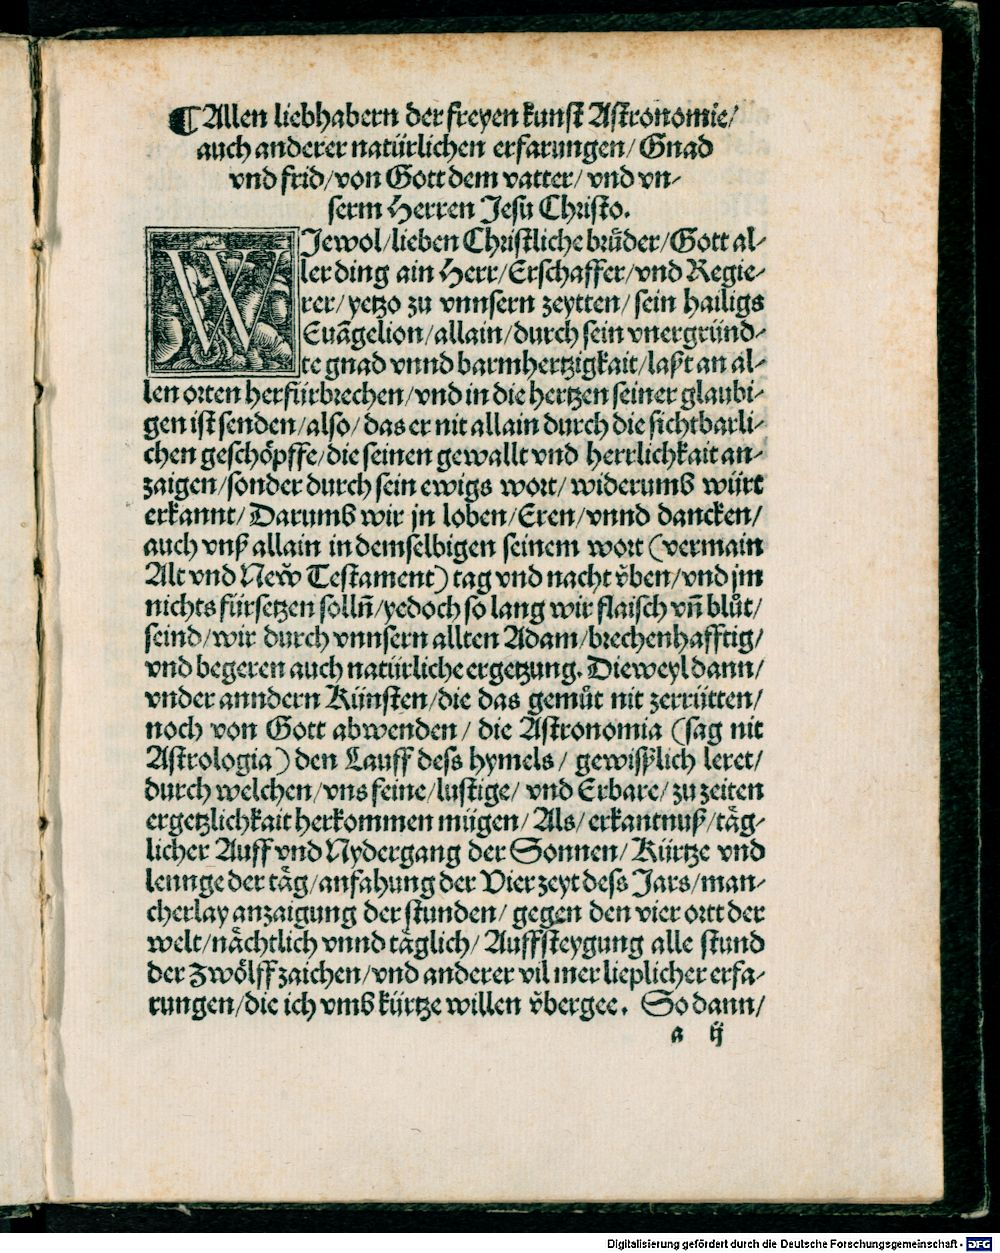 ¶ Allen liebhabern der freyen kunst Astronomie/
auch anderer natürlichen erfarungen/ Gnad
vnd frid/ von Gott dem vatter/ vnd vn-
serm Herren Jesu Christo.
WJewol/ lieben Christliche brůder/ Gott al-
ler ding ain Herr/ Erschaffer/ vnd Regie-
rer/ yetzo zu vnnsern zeytten/ sein hailigs
Euãgelion/ allain/ durch sein vnergründ-
te gnad vnnd barmhertzigkait/ laßt an al-
len orten herfürbrechen/ vnd in die hertzen seiner glaubi-
gen ist senden/ also/ das er nit allain durch die sichtbarli-
chen geschöpffe/ die seinen gewallt vnd herrlichkait an-
zaigen/ sonder durch sein ewigs wort/ widerumb würt
erkannt/ Darumb wir jn loben/ Eren/ vnnd dancken/
auch vnß allain in demselbigen seinem wort (vermain
Alt vnd New̌ Testament) tag vnd nacht v̌ben/ vnd jm
nichts fürsetzen solln̄/ yedoch so lang wir flaisch vn̄ blůt/
seind/ wir durch vnnsern allten Adam/ brechenhafftig/
vnd begeren auch natürliche ergetzung. Dieweyl dann/
vnder anndern Künsten/ die das gemůt nit zerrütten/
noch von Gott abwenden/ die Astronomia (sag nit
Astrologia) den Lauff dess hymels/ gewißlich leret/
durch welchen/ vns feine/ lustige/ vnd Erbare/ zu zeiten
ergetzlichkait herkommen mügen/ Als/ erkantnuß/ täg-
licher Auff vnd Nydergang der Sonnen/ Kürtze vnd
lennge der täg/ anfahung der Vier zeyt dess Jars/ man-
cherlay anzaigung der stunden/ gegen den vier ortt der
welt/ nächtlich vnnd täglich/ Auffsteygung alle stund
der Zwölff zaichen/ vnd anderer vil mer lieplicher erfa-
rungen/ die ich vmb kürtze willen v̌bergee. So dann/
a ij
Digitalisierung gefördert durch die Deutsche Forschungsgemeinschaft - DFG